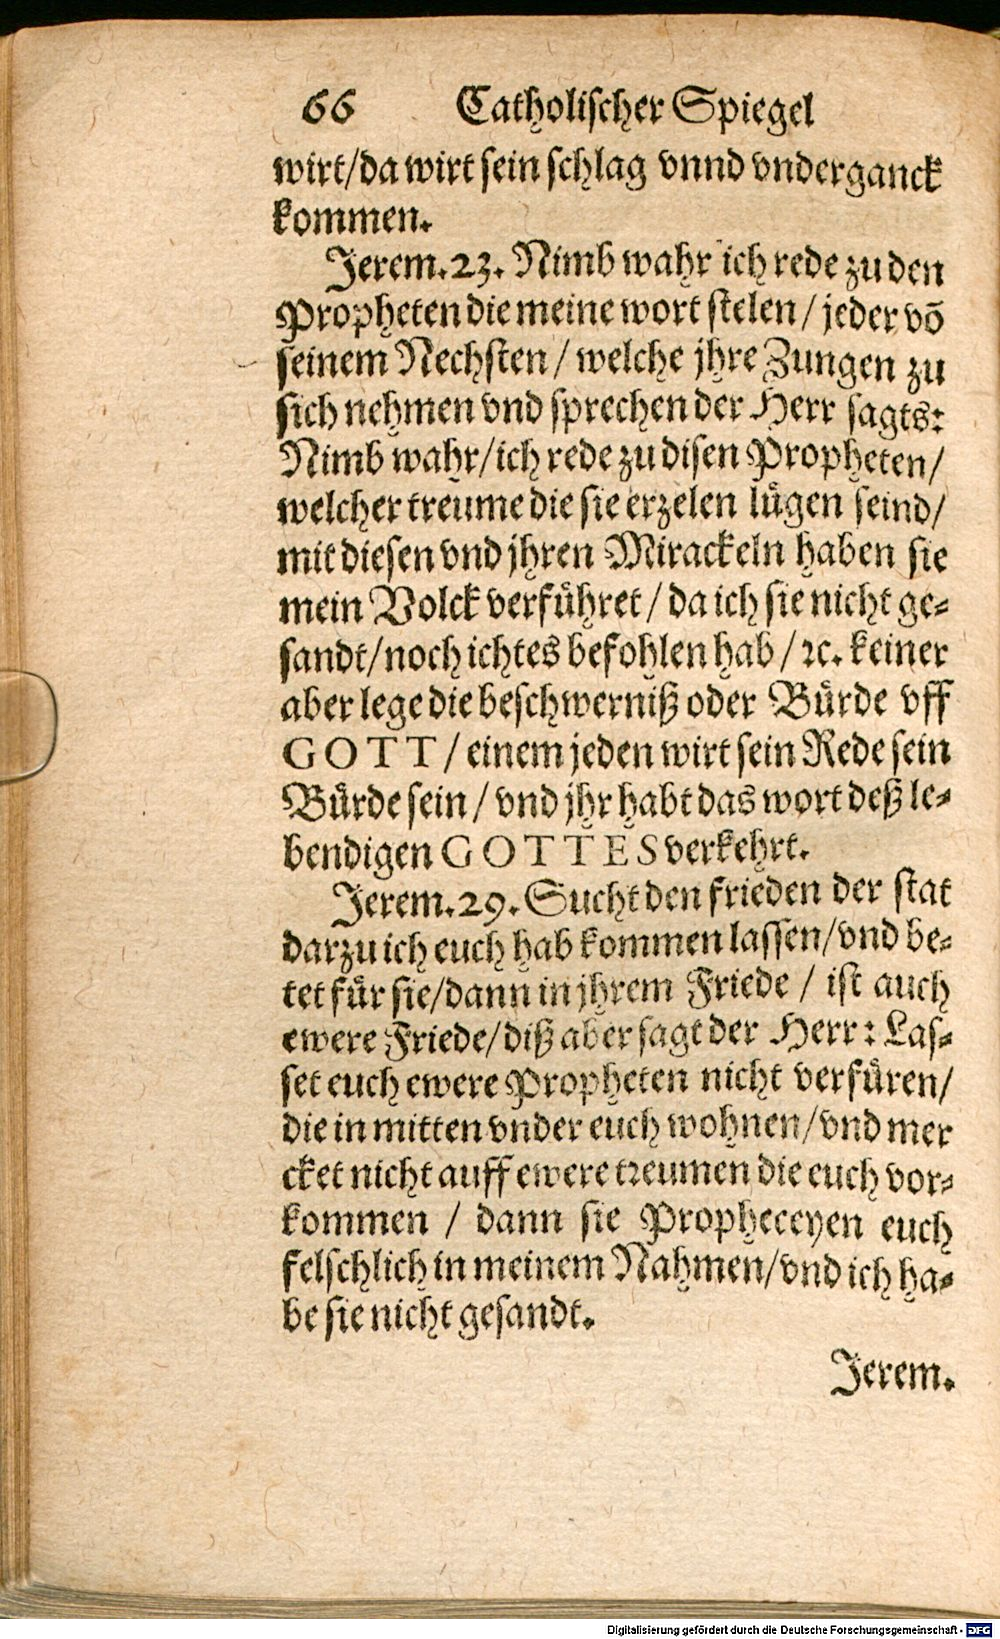 66 Catholischer Spiegel
wirt/da wirt sein schlag vnnd vnderganck
kommen.
Jerem.23. Nimb wahr ich rede zu den
Propheten die meine wort stelen / jeder võ
seinem Nechsten / welche jhre Zungen zu
sich nehmen vnd sprechen der Herr sagts:
Nimb wahr/ich rede zu disen Propheten/
welcher treume die sie erzelen lügen seind/
mit diesen vnd jhren Mirackeln haben sie
mein Volck verführet / da ich sie nicht ge-
sandt/noch ichtes befohlen hab / ꝛc. keiner
aber lege die beschwerniß oder Bürde vff
GOTT / einem jeden wirt sein Rede sein
Bürde sein / vnd jhr habt das wort deß le-
bendigen GOTTES verkehrt.
Jerem.29. Sucht den frieden der stat
darzu ich euch hab kommen lassen/vnd be-
tet für sie/dann in jhrem Friede / ist auch
ewere Friede/diß aber sagt der Herr: Las-
set euch ewere Propheten nicht verfüren/
die in mitten vnder euch wohnen/vnd mer
cket nicht auff ewere treumen die euch vor-
kommen / dann sie Propheceyen euch
felschlich in meinem Nahmen/vnd ich ha-
be sie nicht gesandt.
Jerem.
Digitalisierung gefördert durch die Deutsche Forschungsgemeinschaft - DFG